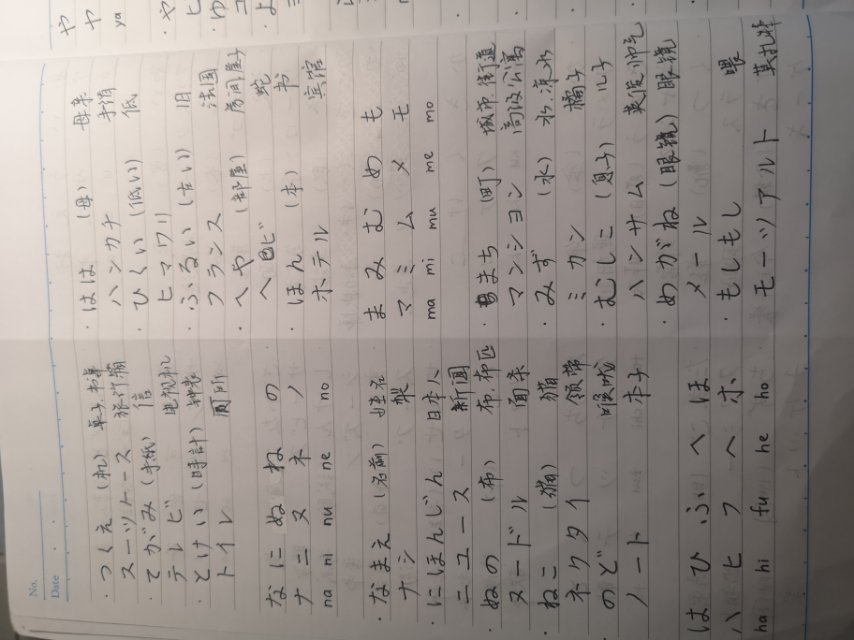 No.
Date
・つくえ (机) 桌子.书桌
スーツケース 旅行箱
・てがみ (手紙) 信
テレビ 电视机
・とけい (時計) 钟表
トイレ 厕所
な に ぬ ね の
ナ ニ ヌ ネ ノ
na ni nu ne no
・なまえ (名前) 姓名
ナシ 梨
・にほんじん 日本人
ニュース 新闻
・ぬの (布) 布.布匹
ヌードル 面条
・ねこ (猫) 猫
ネクタイ 领带
のど 喉咙
ノート 本子
は ひ ふ へ ほ
ハ ヒ フ ヘ ホ
ha hi fu he ho
・はは (母) 母亲
ハンカチ 手绢
・ひくい (低い) 低
ヒマワリ
・ふるい (古い) 旧
フランス 法国
・へや (部屋) 房间屋子
ヘビ 蛇
・ほん (本) 书
ホテル 宾馆
ま み む め も
マ ミ ム メ モ
ma mi mu me mo
・まち (町) 城市.街道
マンション 高级公寓
・みず (水) 水.凉水
ミカン 橘子
・むしこ (息子) 儿子
ハンサム 英俊.帅气
・めがね (眼鏡) 眼镜
メール
・もしもし 喂
モーツアルト 莫扎特
や
ヤ
ya